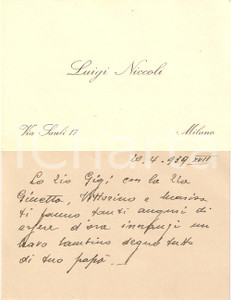 Luigi Niccoli
Via Sauli 17 Milano
20.4.939 XVII
Lo Zio Gigi con la Zia
Ginetta, Vittorino e Marisa
ti fanno tanti auguri di
essere d'ora innanzi un
bravo bambino degno tutto
di tuo papà.